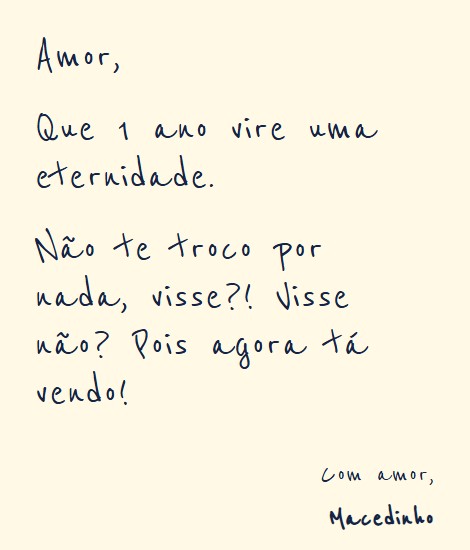 Amor,
Que 1 ano vire uma
eternidade.
Não te troco por
nada, visse?! Visse
não? Pois agora tá
vendo!
Com amor,
Macedinho